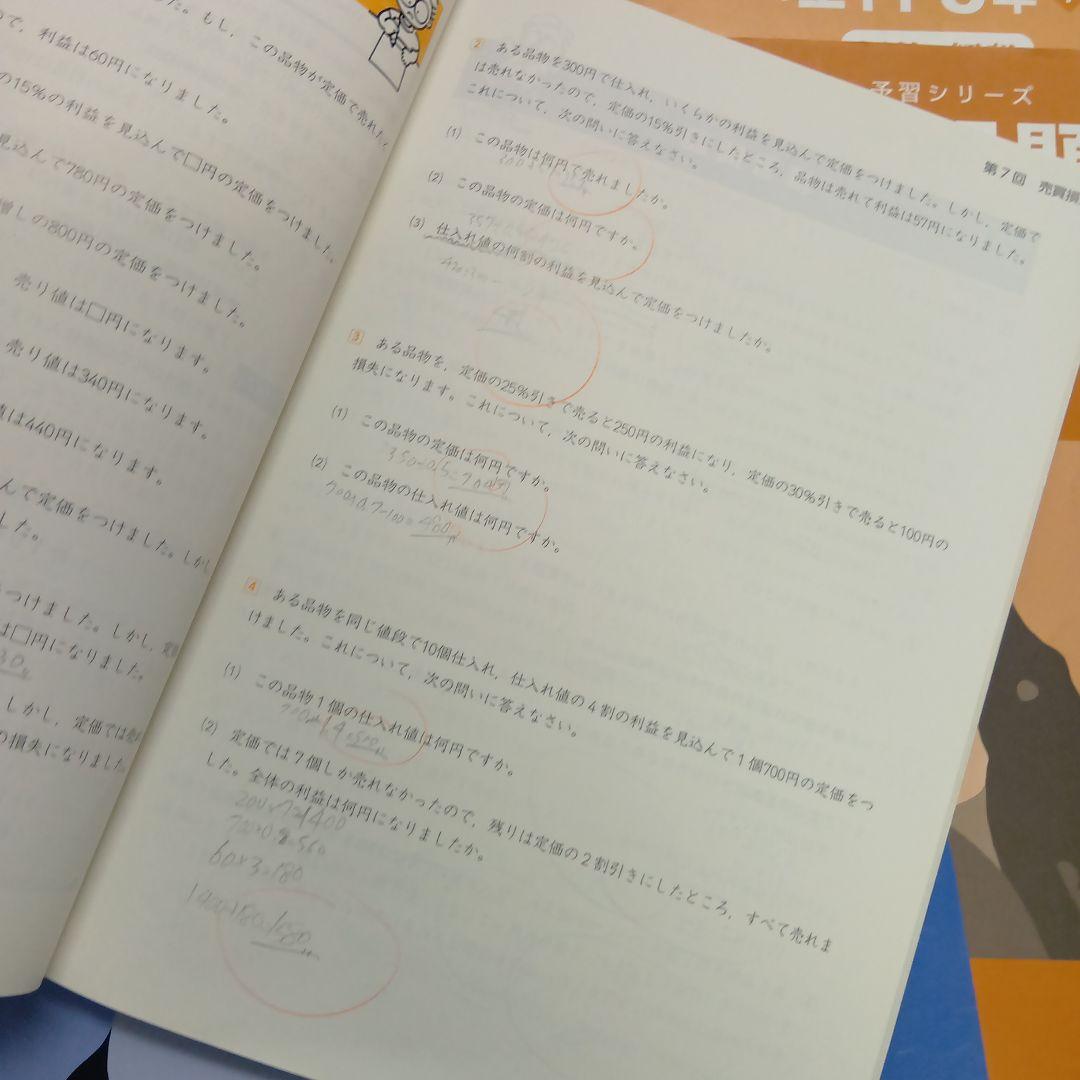 した。もし，この品物が定価で売れた
ので，利益は60円になりました。
の15%の利益を見込んで□円の定価をつけました。
見込んで780円の定価をつけました。
増しの800円の定価をつけました。
売り値は□円になります。
売り値は340円になります。
値は440円になります。
んで定価をつけました。しかし
した。
をつけました。しかし，定
は□円になりました。
30
しかし，定価では売
の損失になりました
予習シリーズ
第7回 売買損
2 ある品物を300円で仕入れ，いくらかの利益を見込んで定価をつけました。しかし，定価で
は売れなかったので，定価の15%引きにしたところ，品物は売れて利益は57円になりました。
これについて，次の問いに答えなさい。
(1) この品物は何円で売れましたか。
(2) この品物の定価は何円ですか。
(3) 仕入れ値の何割の利益を見込んで定価をつけましたか。
3 ある品物を，定価の25%引きで売ると250円の利益になり，定価の30%引きで売ると100円の
損失になります。これについて，次の問いに答えなさい。
(1) この品物の定価は何円ですか。
(2) この品物の仕入れ値は何円ですか。
4 ある品物を同じ値段で10個仕入れ，仕入れ値の4割の利益を見込んで1個700円の定価をつ
けました。これについて，次の問いに答えなさい。
(1) この品物1個の仕入れ値は何円ですか。
(2) 定価では7個しか売れなかったので，残りは定価の2割引きにしたところ，すべて売れま
した。全体の利益は何円になりましたか。
200×7=1400
700×0.8=560
60×3=180
1400+180=1580